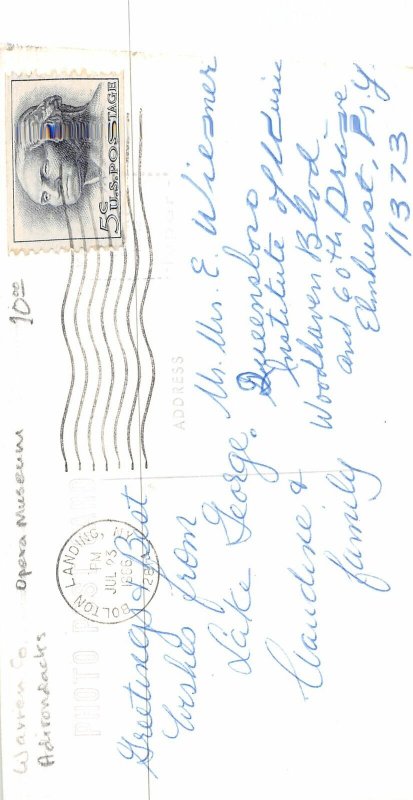 Warren Co Opera Museum 10.00
Adirondacks
PHOTO POST CARD
5¢ U.S. POSTAGE
BOLTON LANDING, NY
PM
JUL 23
1966
12814
Greetings & Best
Wishes from
Lake George.
Claudine &
family
ADDRESS
Mr. Mrs. E. Wiesner
Queensboro
Institute of Music
Woodhaven Blvd
and 60th Drive
Elmhurst, N.Y.
11373